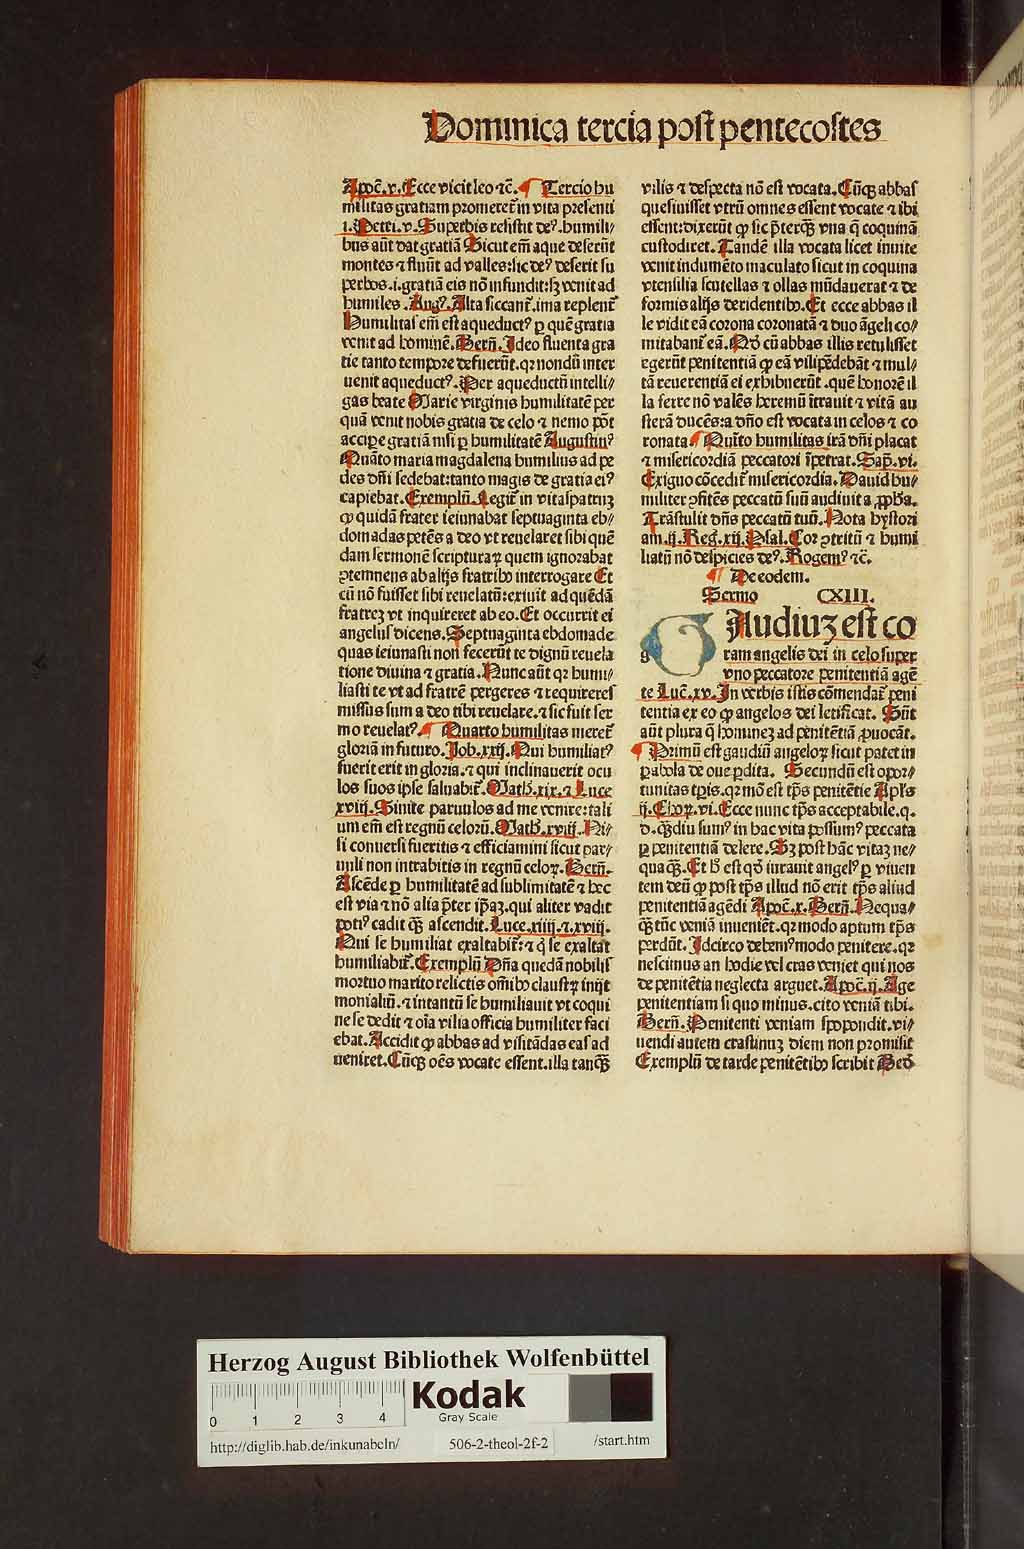 Dominica tercia post pentecostes
Apoc̄.v. Ecce vicit leo ⁊c̄. ¶ Tercio hu
militas gratiam promeret᷑ in vita presenti
i. Petri. v. Superbis resistit deꝰ. humili⸗
bus aūt dat gratiā Sicut em̄ aque deserūt
montes ⁊ fluūt ad valles: sic deꝰ deserit su
perbos .i. gratiā eis nō infundit: sꝫ venit ad
humiles. Augꝰ. Alta siccant᷑. ima replent᷑
Humilitas em̄ est aqueductꝰ ꝑ quē gratia
venit ad hominē. Berñ. Ideo fluenta gra
tie tanto tempore defuerūt. qꝛ nondū inter
uenit aqueductꝰ. Per aqueductū intelli⸗
gas beate Marie virginis humilitatē per
quā venit nobis gratia de celo ⁊ nemo pōt
accipe gratiā nisi ꝑ humilitatē Augustinꝰ
Quāto maria magdalena humilius ad pe
des dñi sedebat: tanto magis de gratia eiꝰ
capiebat. Exemplū. Legit᷑ in vitaspatruꝫ
ꝙ quidā frater ieiunabat septuaginta eb⸗
domadas petēs a deo vt reuelaret sibi quē
dam sermonē scripturaꝝ quem ignorabat
ꝯtemnens ab alijs fratribꝰ interrogare Et
cū nō fuisset sibi reuelatū: exiuit ad quēdā
fratreꝫ vt inquireret ab eo. Et occurrit ei
angelus dicens. Septuaginta ebdomade
quas ieiunasti non fecerūt te dignū reuela
tione diuina ⁊ gratia. Nunc aūt qꝛ humi⸗
liasti te vt ad fratrē pergeres ⁊ requireres
missus sum a deo tibi reuelare. ⁊ sic fuit ser
mo reuelatꝰ. ¶ Quarto humilitas meret᷑
gloriā in futuro. Job. xxij. Qui humiliatꝰ
fuerit erit in gloria. ⁊ qui inclinauerit ocu
los suos ipse saluabit᷑. Math. xix. ⁊ Luce
xviij. Sinite paruulos ad me venire: tali
um em̄ est regnū celorū. Math. xviij. Ni⸗
si conuersi fueritis ⁊ efficiamini sicut par⸗
uuli non intrabitis in regnū celoꝝ. Berñ.
Ascēde ꝑ humilitatē ad sublimitatē ⁊ hec
est via ⁊ nō alia p̄ter ip̄aꝫ. qui aliter vadit
potiꝰ cadit q̄ꝫ ascendit. Luce. xiiij. ⁊. xviij.
Qui se humiliat exaltabit᷑: ⁊ q̇ se exaltat
humiliabit᷑. Exemplū Dña quedā nobilis
mortuo marito relictis om̄ibꝰ claustꝝ inijt
monialiū. ⁊ intantū se humiliauit vt coqui
ne se dedit ⁊ oīa vilia officia humiliter faci
ebat. Accidit ꝙ abbas ad visitādas eas ad
ueniret. Cūqꝫ oēs vocate essent. illa tanq̄ꝫ
vilis ⁊ despecta nō est vocata. Cūqꝫ abbas
quesiuisset vtrū omnes essent vocate ⁊ ibi
essent: dixerūt ꝙ sic p̄terq̄ꝫ vna q̄ coquinā
custodiret. Tandē illa vocata licet inuite
venit indumēto maculato sicut in coquina
vtensilia scutellas ⁊ ollas mūdauerat ⁊ de
formis alijs deridentibꝰ. Et ecce abbas il
le vidit eā corona coronatā ⁊ duo āgeli co⸗
mitabant᷑ eā. Qḋ cū abbas illis retulisset
egerūt penitentiā ꝙ eā vilipēdebāt ⁊ mul⸗
tā reuerentiā ei exhibuerūt. quē honorē il
la ferre nō valēs heremū ītrauit ⁊ vitā au
sterā ducēs: a dño est vocata in celos ⁊ co
ronata ¶ Quīto humilitas irā dñi placat
⁊ misericordiā peccatori īpetrat. Sap̄. vi.
Exiguo cōcedit᷑ misericordia. Dauid hu⸗
militer ꝯfitēs peccatū suū audiuit a ꝓph̄a.
Trāstulit dñs peccatū tuū. Nota hystori
am .ij. Reg̃. xij. Psal. Cor ꝯtritū ⁊ humi
liatū nō despicies deꝰ. Rogemꝰ ⁊c̄.
¶ De eodem.
Sermo CXIII.
GAudiuꝫ est co
g ram angelis dei in celo super
vno peccatore penitentiā agē
te Luc̄. xv. In verbis istis cōmendat᷑ peni
tentia ex eo ꝙ angelos dei letificat. Sūt
aūt plura q̄ homineꝫ ad penitētiā ꝓuocāt.
¶ Primū est gaudiū angeloꝝ sicut patet in
ꝑabola de oue ꝑdita. Secundū est opor⸗
tunitas tp̄is. qꝛ mō est tp̄s penitētie Apl̄s
ij. Choꝝ. vi. Ecce nunc tp̄s acceptabile. q.
d. q̄ꝫdiu sumꝰ in hac vita possumꝰ peccata
ꝑ penitentiā delere. Sꝫ post hāc vitaꝫ ne⸗
quaq̄ꝫ. Et h̄ est qḋ iurauit angelꝰ ꝑ viuen
tem deū ꝙ post tp̄s illud nō erit tp̄s aliud
penitentiā agēdi Apoc̄. x. Berñ. Nequa⸗
q̄ꝫ tūc veniā inueniēt. qꝛ modo aptum tp̄s
perdūt. Idcirco debemꝰ modo penitere. qꝛ
nescimus an hodie vel cras veniet qui nos
de penitētia neglecta arguet. Apoc̄. ij. Age
penitentiam si quo minus. cito veniā tibi.
Berñ. Penitenti veniam spopondit. vi⸗
uendi autem crastinuꝫ diem non promisit
Exemplū de tarde penitētibꝰ scribit Beḋ
Herzog August Bibliothek Wolfenbüttel
0 1 2 3 4
Kodak
Gray Scale
http://diglib.hab.de/inkunabeln/ 506-2-theol-2f-2 /start.htm